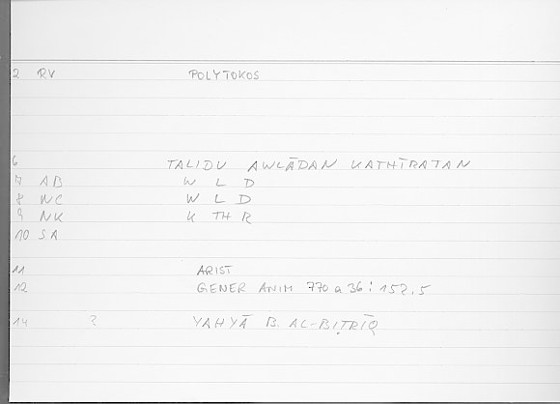 2 RV POLYTOKOS
6 TALIDU AWLĀDAN KATHĪRATAN
7 AB W L D
8 NC W L D
9 NK K TH R
10 SA
11 ARIST
12 GENER ANIM 770 a 36 : 152.5
14 ? YAHYĀ B. AL-BIṬRĪQ